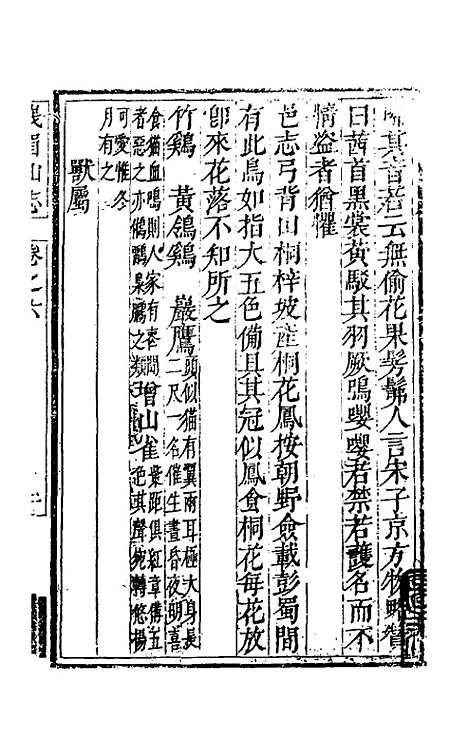 其音若云無偷花果髣髴人言宋子京方物略贊
曰茜首黑裳黃駁其羽厥鳴嚶嚶若禁若護名而不
情盗者猶懼
邑志弓背山桐梓坡產桐花鳳按朝野僉載彭蜀間
有此鳥如指大五色備具其冠似鳳食桐花每花放
即來花落不知所之
竹鷄　黃鴿鷄　巖鷹頭似猫有翼兩耳極大身長
二尺一名催生晝昏夜明喜
食猫血鳴則人家有奏聞
者惡之亦鵂鶹梟鷹之類增山雀紫距俱紅章備五
色其聲宛轉悠揚
可愛惟冬
月有之
獸屬
峨眉山志
卷之六